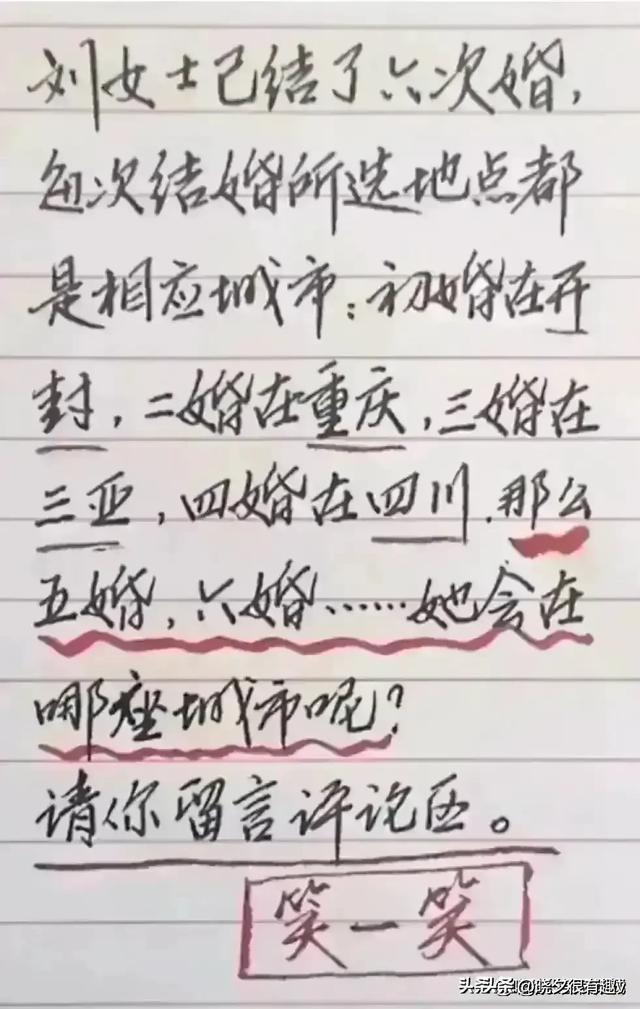 刘女士已结了六次婚，
每次结婚所选地点都
是相应城市：初婚在开
封，二婚在重庆，三婚在
三亚，四婚在四川．那么
五婚，六婚……她会在
哪座城市呢？
请你留言评论区。
笑一笑
头条 @晓夕很有趣